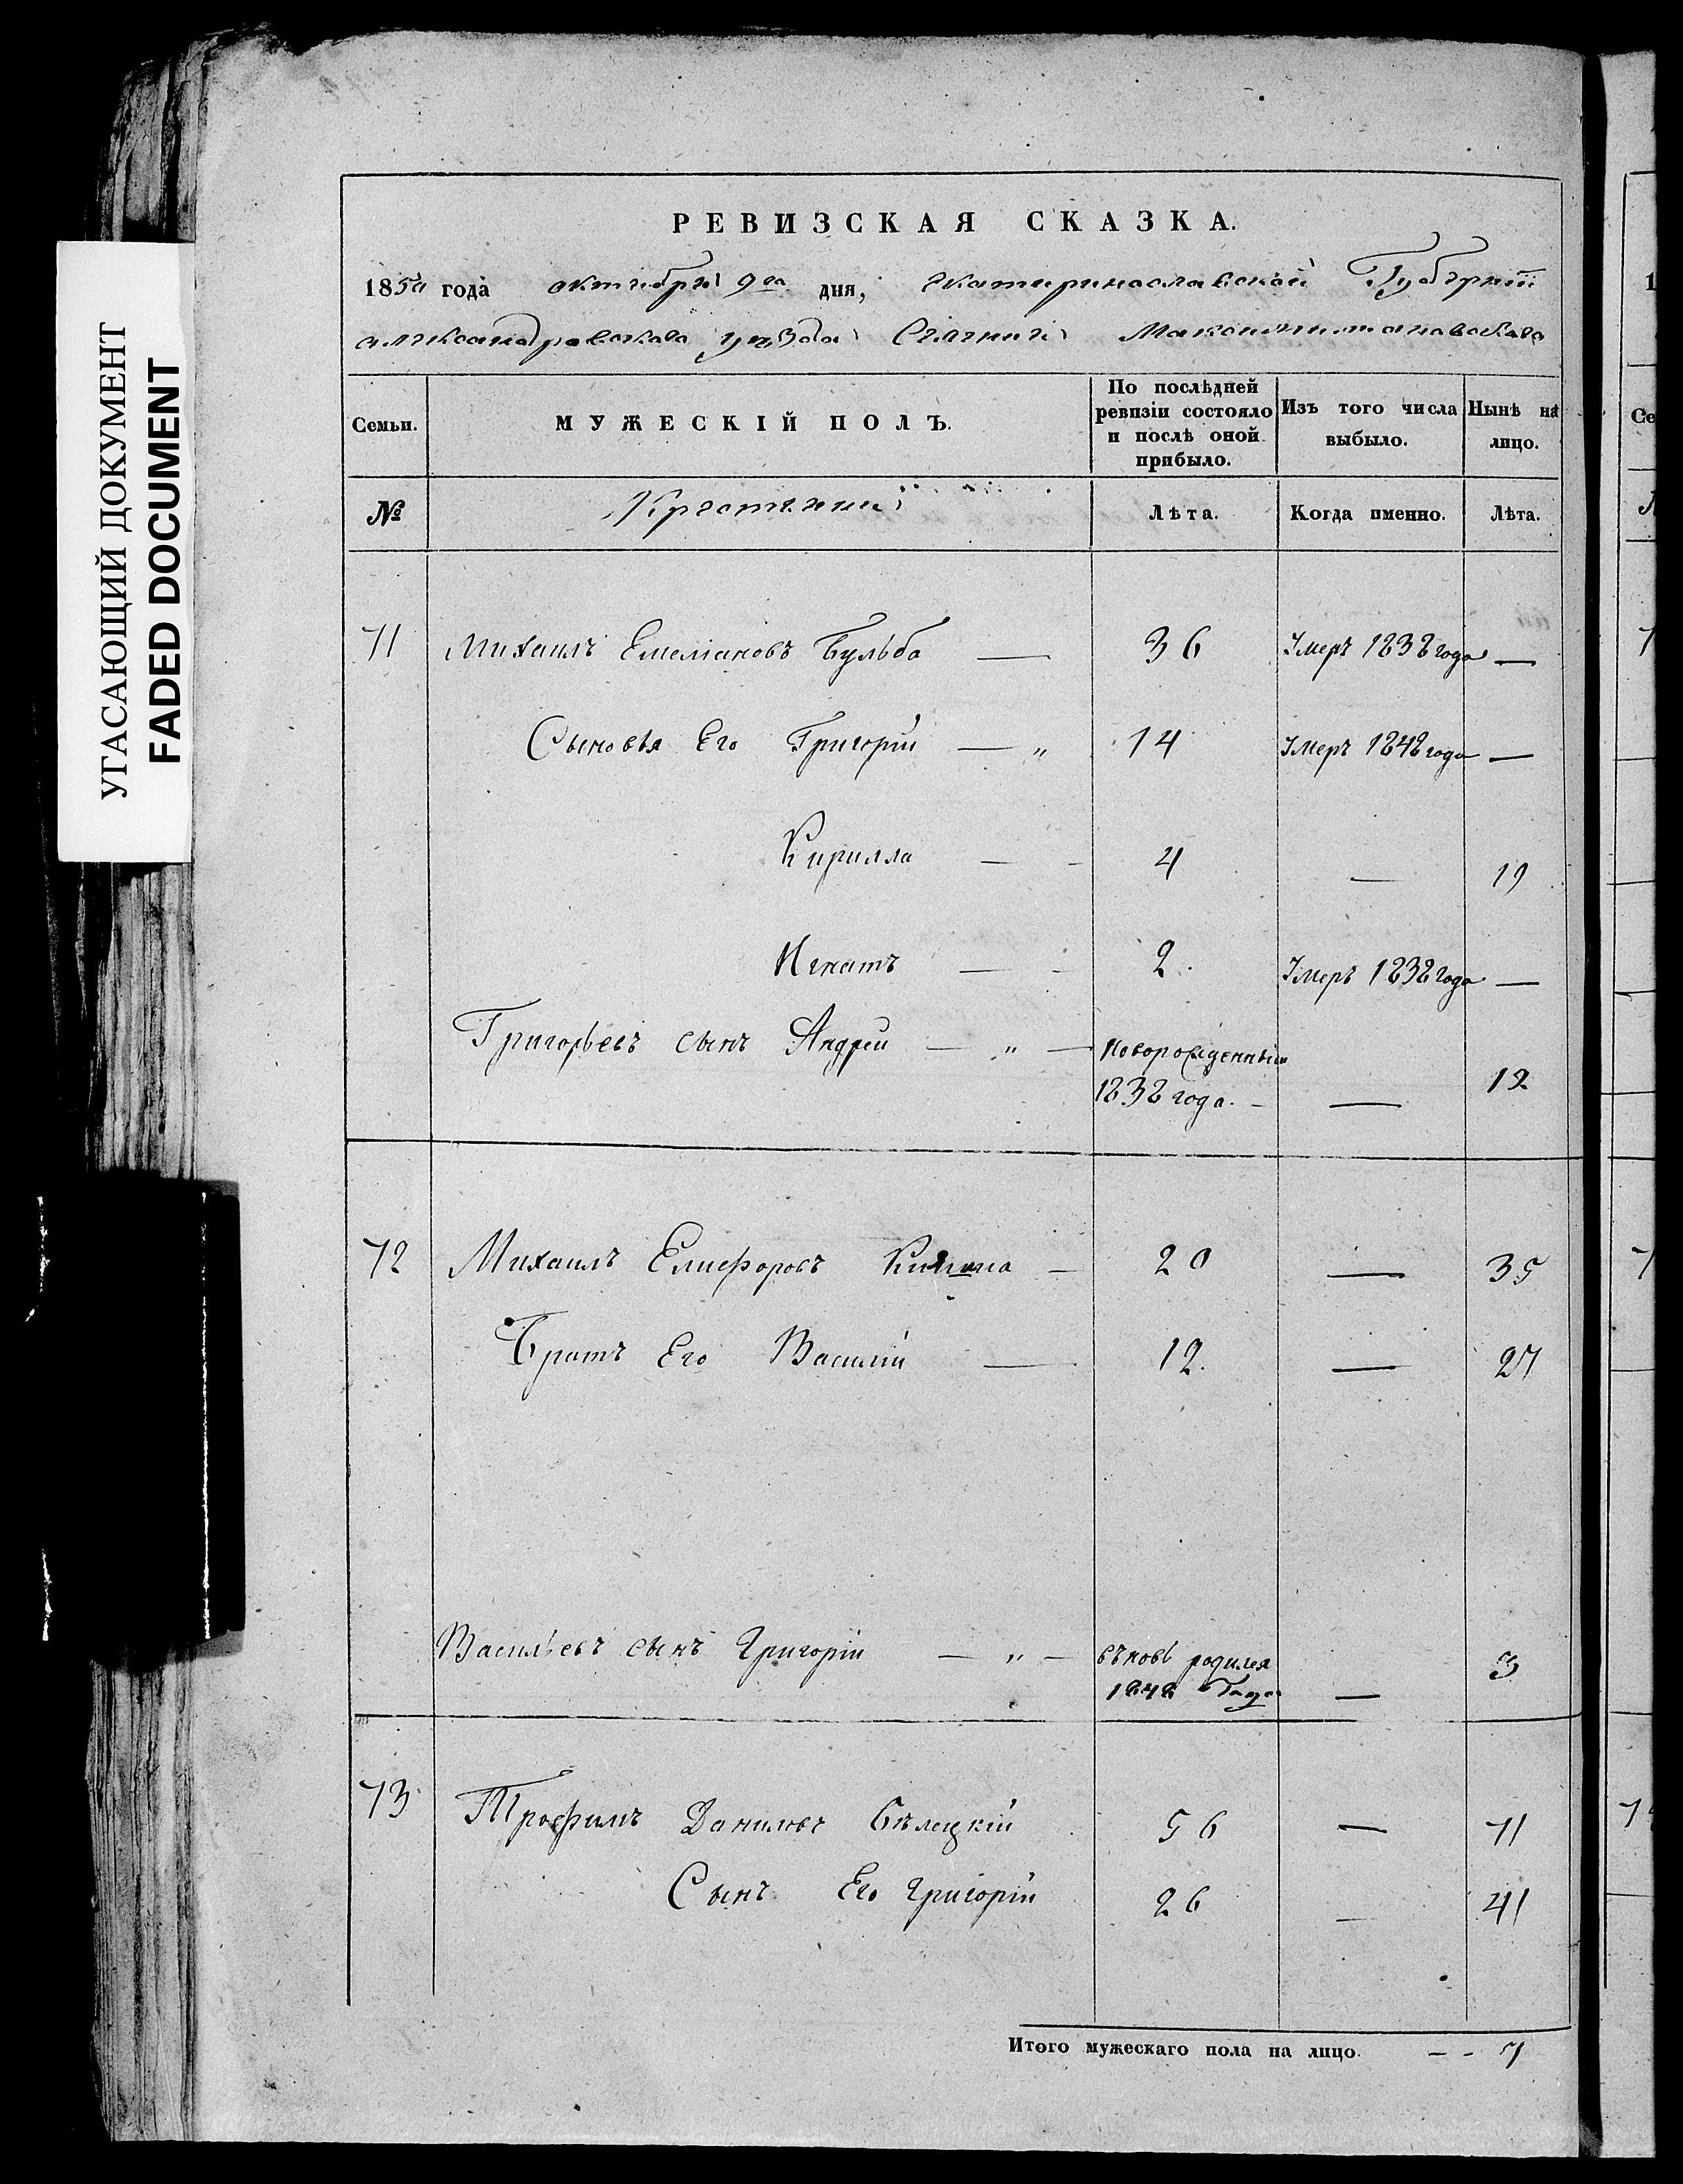 УГАСАЮЩИЙ ДОКУМЕНТ
FADED DOCUMENT
РЕВИЗСКАЯ СКАЗКА.
1850 года октября 9го дня, Екатеринославской Губерніи
александровскаго уѣзда Селенія
Семьи. МУЖЕСКІЙ ПОЛЪ. По послѣдней ревизіи состояло и послѣ оной прибыло. Изъ того числа выбыло. Нынѣ на лицо.
№ Крестьяни Лѣта. Когда именно. Лѣта.
71 Михаилъ Емеліановъ Бульба — 36 Умеръ 1838 года —
Сыновья Его Григорій — „ 14 Умеръ 1848 года —
Кирилла — - 4 — 19
Игнатъ — - 2. Умеръ 1838 года —
Григорьевъ сынъ Андрей — „ — новорожденный
1838 года. - — 12
72 Михаилъ Елисфоровъ — 20 — 35
Братъ Его Василій — 12. — 27
Васильевъ сынъ Григорій — „ — въновь родился 3
1848 Года —
73 Трофимъ Даниловъ Бѣлецкій 56 — 71
Сынъ Его Григорій 26 — 41
Итого мужескаго пола на лицо. - - 7